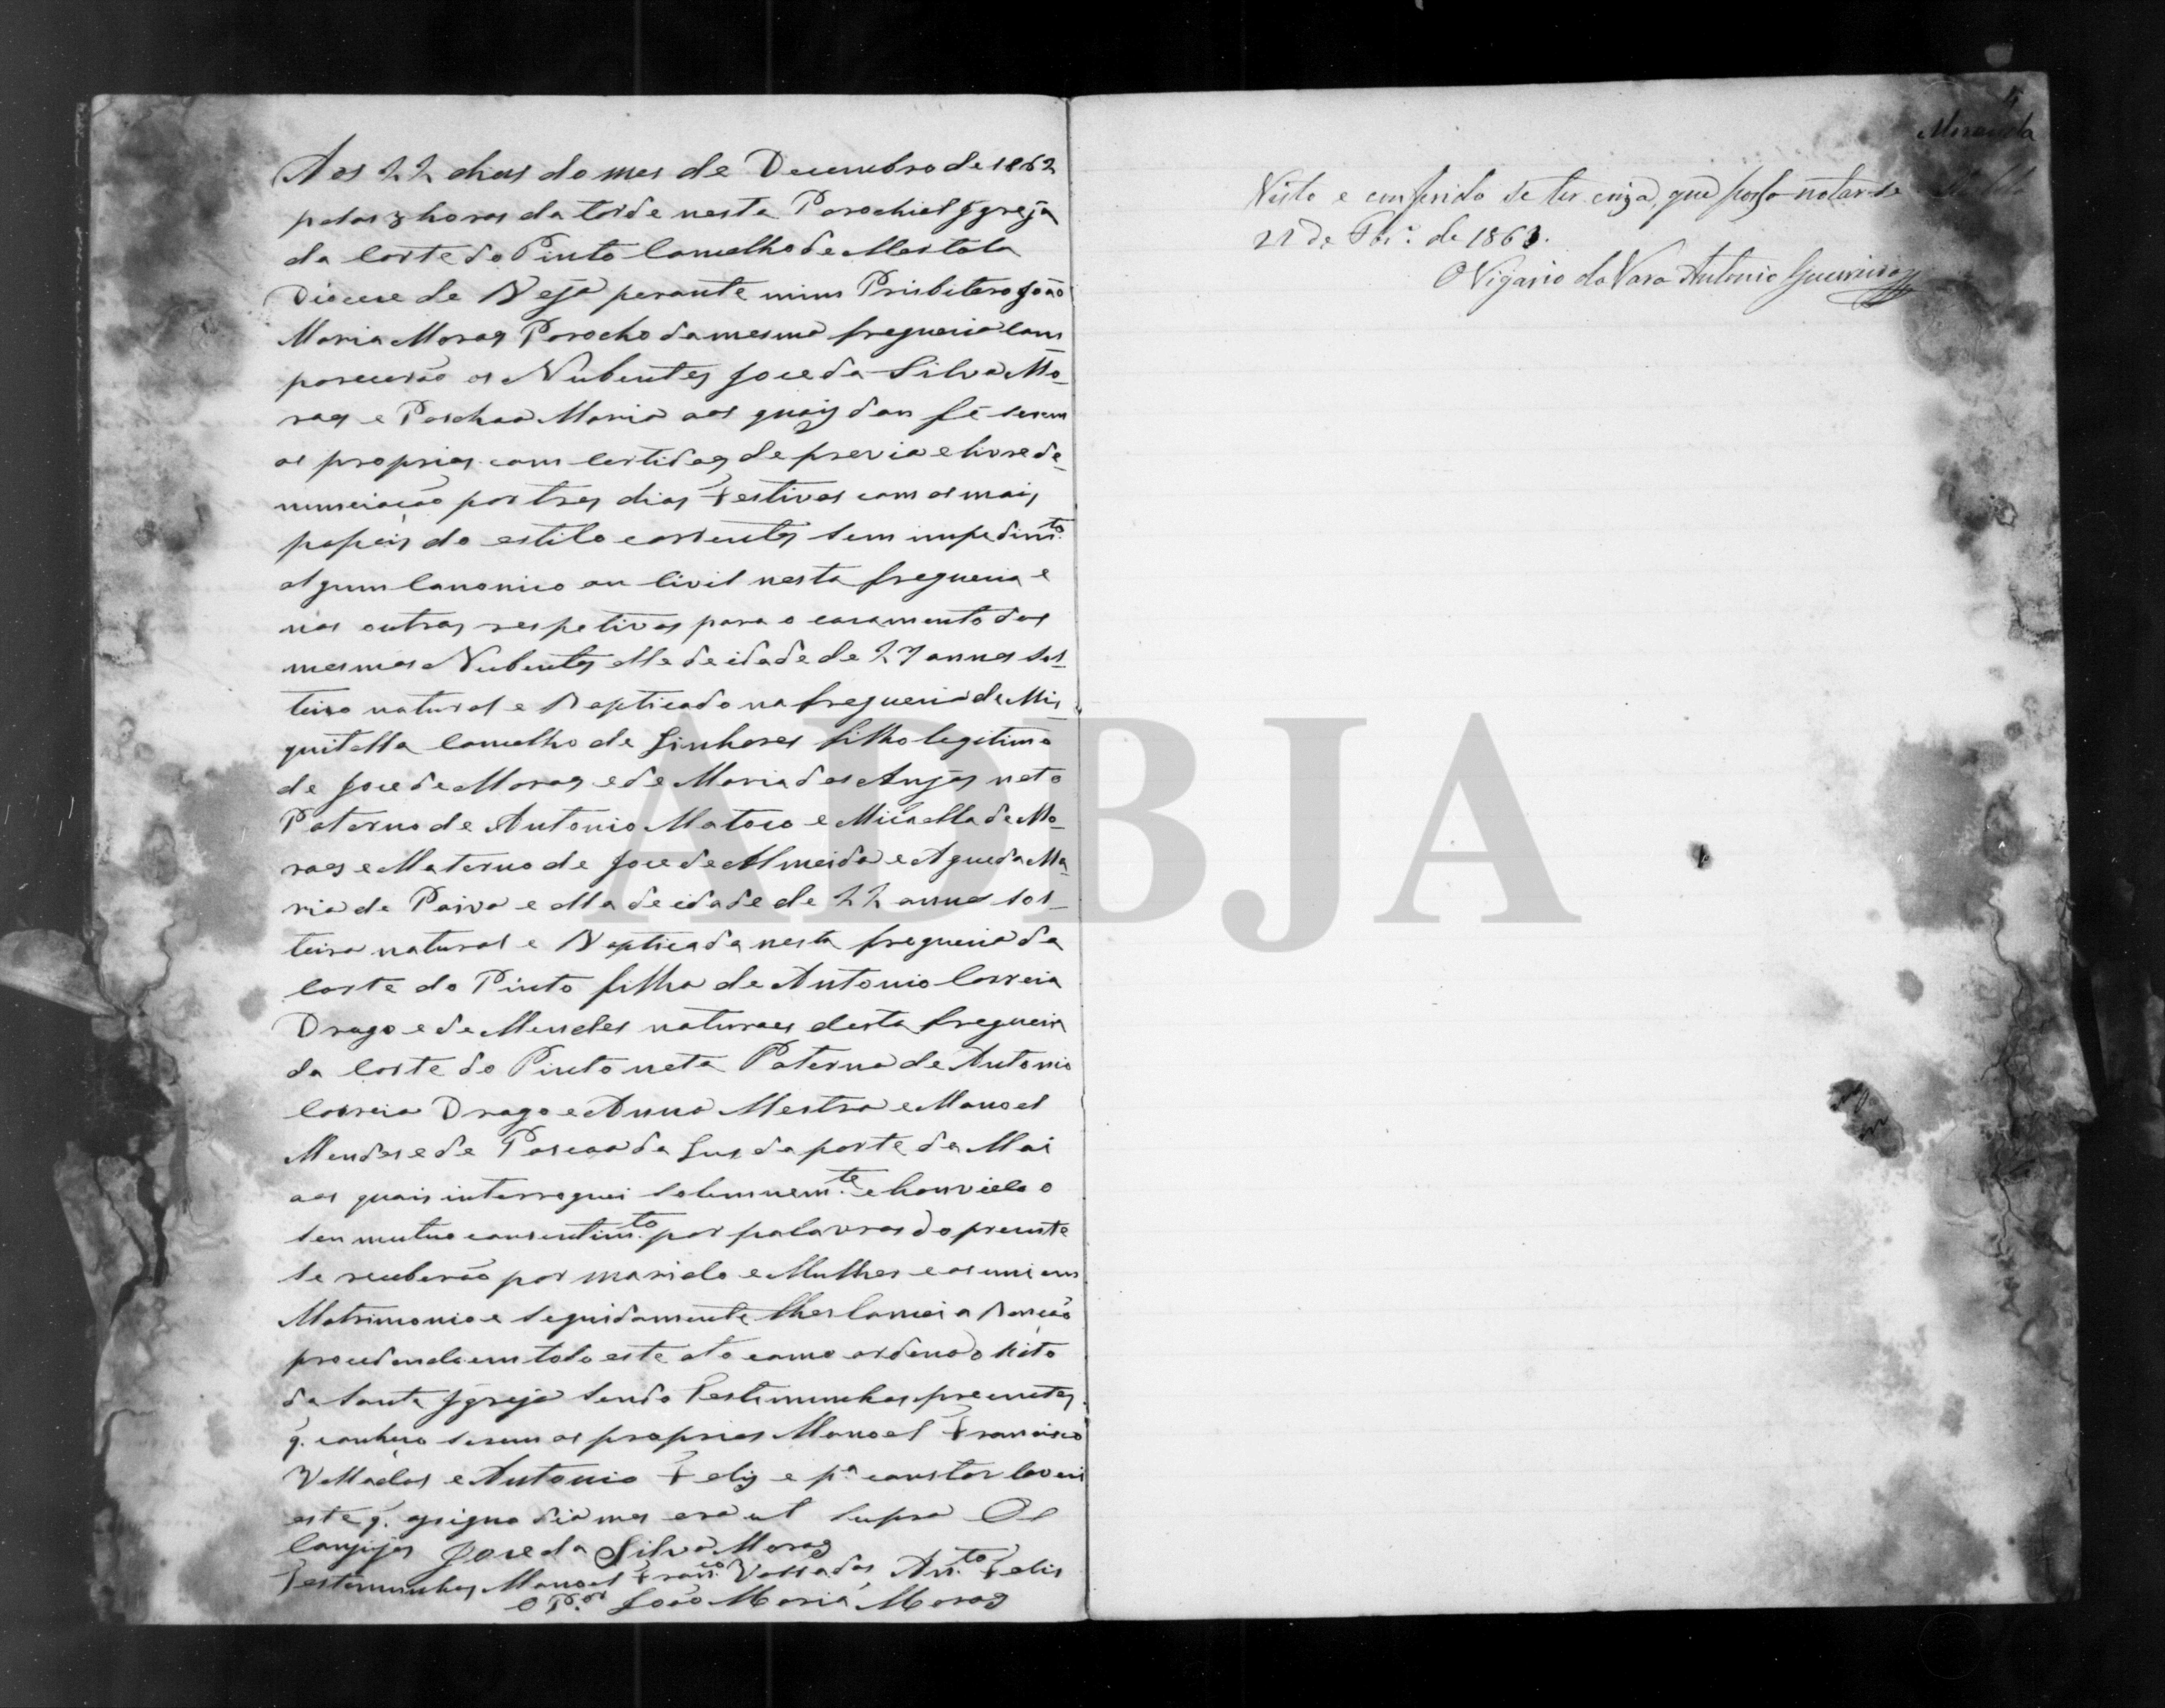 Aos 22 dias do mes de Decembro de 1862
pelas 3 horas da tarde nesta Parochial Igreja
da Corte do Pinto Concelho de Mertola
Diocese de Beja perante mim Prisbitero João
Maria Moraes Parocho da mesma freguesia Com
parecerão os Nubentes Jose da Silva Mo_
raes e Paschoa Maria aos quais dou fé serem
os proprios com Certidões de previa e livre de_
nunciação por tres dias Festivos com os mais
papeis do estilo correntes sem impedim.to
algum Canonico ou Civil nesta freguesia e
nas outras respetivas para o casamento dos
mesmos Nubentes elle de idade de 27 annos sol_
teiro natural e Bapticado na freguesia de Mis_
quitella Concelho de Linhares filho legitimo
de Jose de Moraes e de Maria dos Anjos neto
Paterno de Antonio Matoso e Micaella de Mo_
raes e Materno de Jose de Almeida e Agueda Ma_
ria de Paiva e ella de idade de 22 annos sol_
teira natural e Bapticada nesta freguesia da
Corte do Pinto filha de Antonio Correia
Drago e de Mendes naturaes desta freguesia
da Corte do Pinto neta Paterna de Antonio
Correia Drago e Anna Mestra e Manoel
Mendes e de Pascoa da Lus da parte da Mai
aos quais interroguei solemnem.te e houvido o
seu mutuo consentim.to por palavras do presente
se receberão por marido e Mulher e os uni em
Matrimonio e seguidamente lhes lancei a Benção
procedendo em todo este ato como ordena o Rito
da Santa Igreja sendo Testemunhas presentes
q. conheco serem os proprios Manoel Francisco
Vallados e Antonio Felis e p.a constar lavrei
este q. asigno dia mes era ut supra Os
Conjujes Jose da Silva Moraes
Testemunhas Manoel Fran.co Vallados Ant.to Felis
O P.or João Maria Moraes
Visto e conferido
21 de de 1863.
O Vigario da Vara Antonio Guerreiro
ADBJA